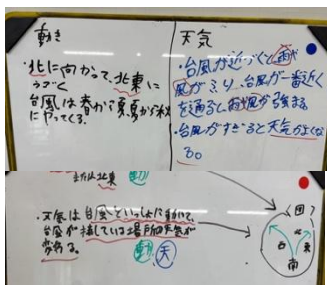 動き
・北に向かって、北東に
うごく
台風は春から夏、夏から秋
にやってくる。
天気
・台風が近づくと雨が
風がふり、台風が一番近く
を通るし雨風が強まる。
・台風がすぎると天気がよくな
る。
または北東 動
・天風は台風といっしょにすすいて、
台風が接している場所の天気が
変わる。
動 天
北
西 東
南